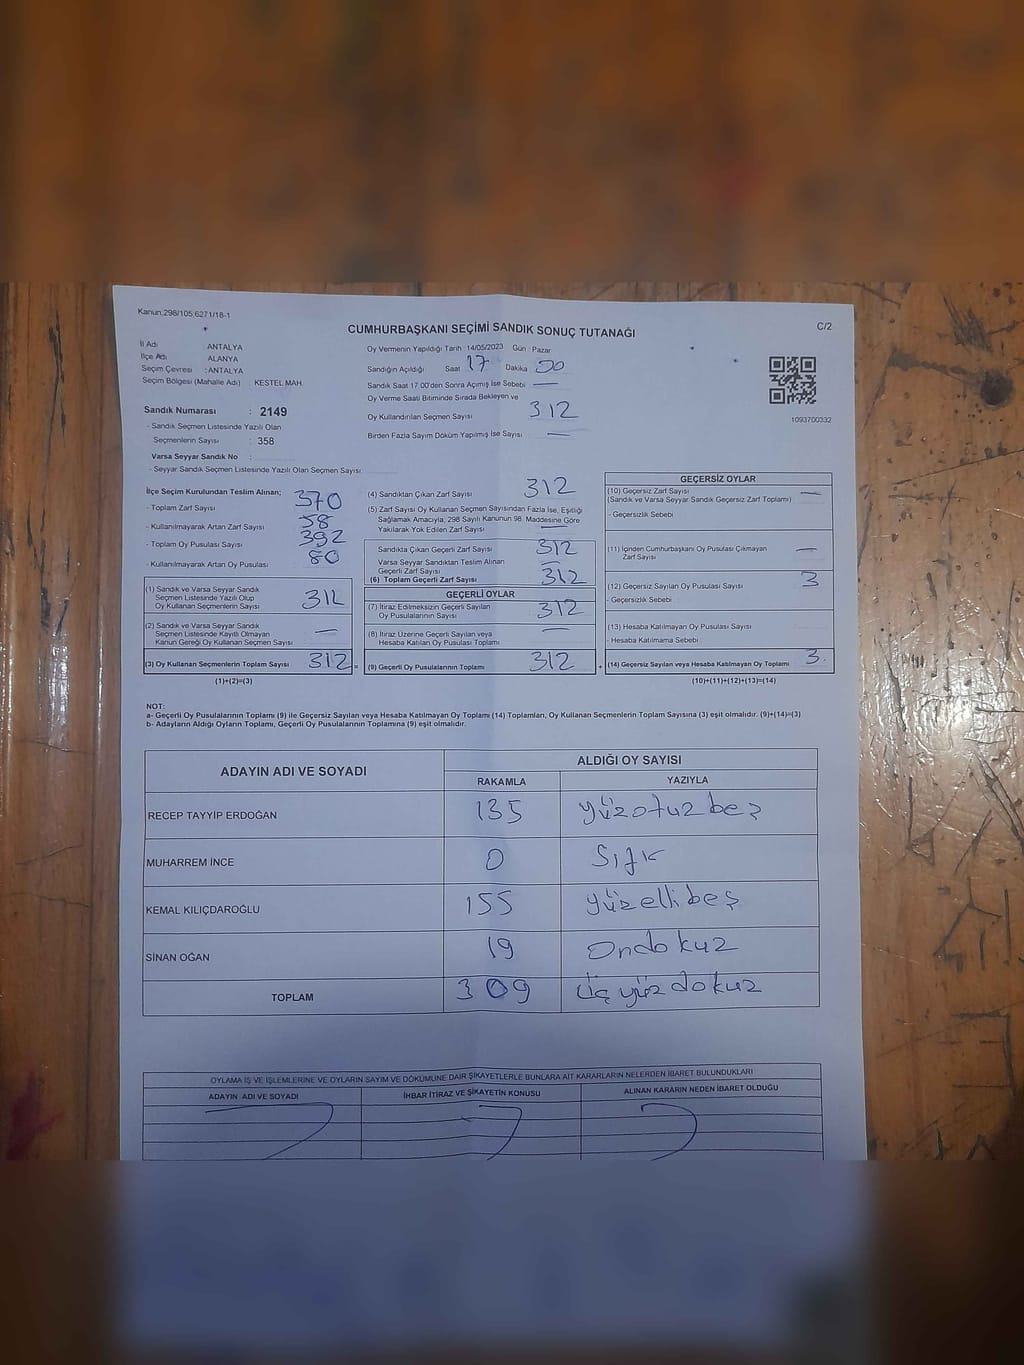 Kanun,298/105,6271/18-1
CUMHURBAŞKANI SEÇİMİ SANDIK SONUÇ TUTANAĞI
C/2
İl Adı : ANTALYA
İlçe Adı : ALANYA
Seçim Çevresi : ANTALYA
Seçim Bölgesi (Mahalle Adı) : KESTEL MAH.
Sandık Numarası : 2149
- Sandık Seçmen Listesinde Yazılı Olan
Seçmenlerin Sayısı : 358
Varsa Seyyar Sandık No :
- Seyyar Sandık Seçmen Listesinde Yazılı Olan Seçmen Sayısı :
Oy Vermenin Yapıldığı Tarih : 14/05/2023 Gün : Pazar
Sandığın Açıldığı Saat 17 Dakika
Sandık Saat 17.00'den Sonra Açımış İse Sebebi —
Oy Verme Saati Bitiminde Sırada Bekleyen ve
Oy Kullandırılan Seçmen Sayısı 312
Birden Fazla Sayım Döküm Yapılmış İse Sayısı —
1093700332
İlçe Seçim Kurulundan Teslim Alınan;
- Toplam Zarf Sayısı 370
- Kullanılmayarak Artan Zarf Sayısı 58
- Toplam Oy Pusulası Sayısı 392
- Kullanılmayarak Artan Oy Pusulası 80
(1) Sandık ve Varsa Seyyar Sandık
Seçmen Listesinde Yazılı Olup
Oy Kullanan Seçmenlerin Sayısı 312
(2) Sandık ve Varsa Seyyar Sandık
Seçmen Listesinde Kayıtlı Olmayan
Kanun Gereği Oy Kullanan Seçmen Sayısı —
(3) Oy Kullanan Seçmenlerin Toplam Sayısı 312 =
(1)+(2)=(3)
(4) Sandıktan Çıkan Zarf Sayısı 312
(5) Zarf Sayısı Oy Kullanan Seçmen Sayısından Fazla İse, Eşitliği
Sağlamak Amacıyla; 298 Sayılı Kanunun 98. Maddesine Göre
Yakılarak Yok Edilen Zarf Sayısı —
Sandıkta Çıkan Geçerli Zarf Sayısı 312
Varsa Seyyar Sandıktan Teslim Alınan
Geçerli Zarf Sayısı —
(6) Toplam Geçerli Zarf Sayısı 312
GEÇERLİ OYLAR
(7) İtiraz Edilmeksizin Geçerli Sayılan
Oy Pusulalarının Sayısı 312
(8) İtiraz Üzerine Geçerli Sayılan veya
Hesaba Katılan Oy Pusulası Toplamı —
(9) Geçerli Oy Pusulalarının Toplamı 312 +
GEÇERSİZ OYLAR
(10) Geçersiz Zarf Sayısı —
(Sandık ve Varsa Seyyar Sandık Geçersiz Zarf Toplamı)
- Geçersizlik Sebebi
(11) İçinden Cumhurbaşkanı Oy Pusulası Çıkmayan
Zarf Sayısı —
(12) Geçersiz Sayılan Oy Pusulası Sayısı 3
- Geçersizlik Sebebi
(13) Hesaba Katılmayan Oy Pusulası Sayısı
- Hesaba Katılmama Sebebi
(14) Geçersiz Sayılan veya Hesaba Katılmayan Oy Toplamı 3
(10)+(11)+(12)+(13)=(14)
NOT:
a- Geçerli Oy Pusulalarının Toplamı (9) ile Geçersiz Sayılan veya Hesaba Katılmayan Oy Toplamı (14) Toplamları, Oy Kullanan Seçmenlerin Toplam Sayısına (3) eşit olmalıdır. (9)+(14)=(3)
b- Adayların Aldığı Oyların Toplamı, Geçerli Oy Pusulalarının Toplamına (9) eşit olmalıdır.
ADAYIN ADI VE SOYADI
ALDIĞI OY SAYISI
RAKAMLA YAZIYLA
RECEP TAYYİP ERDOĞAN 135 yüzotuz beş
MUHARREM İNCE 0 Sıfır
KEMAL KILIÇDAROĞLU 155 yüzelli beş
SİNAN OĞAN 19 Ondokuz
TOPLAM 309 üç yüz dokuz
OYLAMA İŞ VE İŞLEMLERİNE VE OYLARIN SAYIM VE DÖKÜMÜNE DAİR ŞİKAYETLERLE BUNLARA AİT KARARLARIN NELERDEN İBARET BULUNDUKLARI
ADAYIN ADI VE SOYADI İHBAR İTİRAZ VE ŞİKAYETİN KONUSU ALINAN KARARIN NEDEN İBARET OLDUĞU